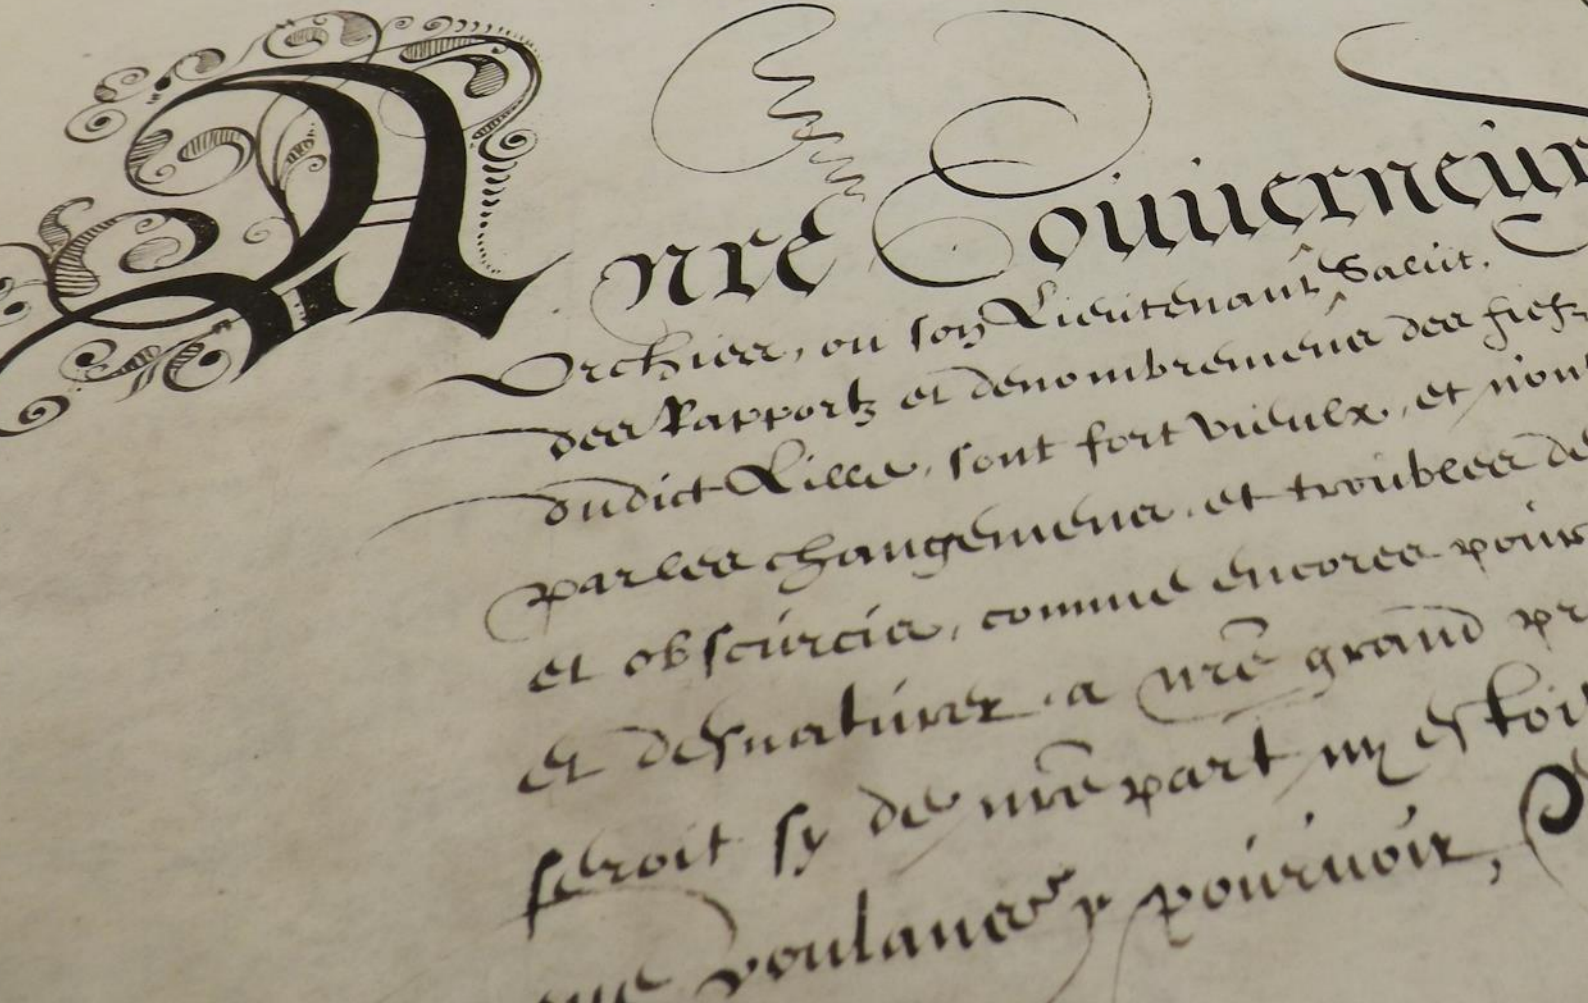 A nre Gouuerneur
Orchies, ou son Lieutenant Salut.
des Rapportz et denombremens des fiefz
dudict Lille, sont fort vieulx, et nont
par les changemens, et troubles de
et obscurcis, comme encores pour
et desnaturer a nre grand pr
seroit sy de nre part ny estoi
que voulans y pouruoir,